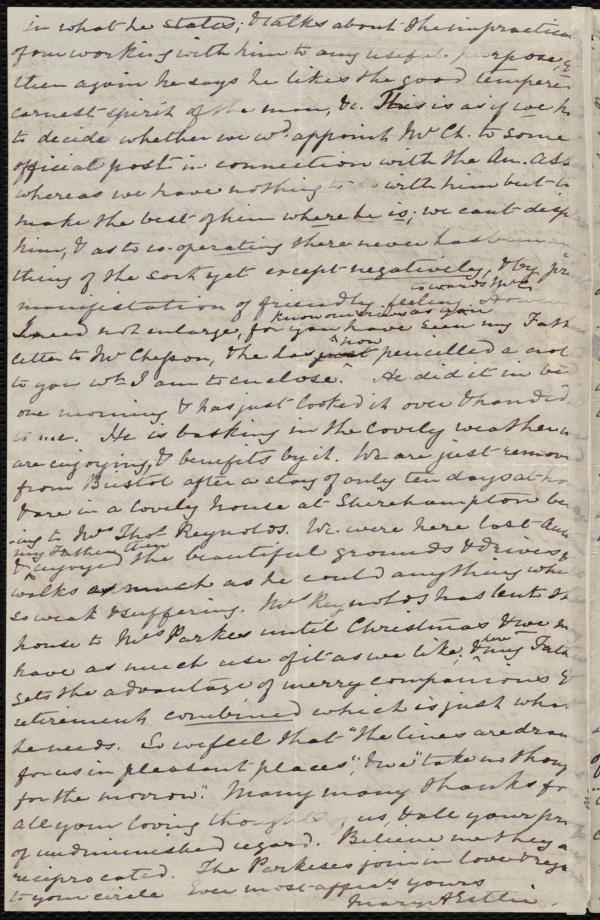 in what he states; & talks about the impractica
of our working with him to any useful purpose, &
then again he says he likes the good tempere
earnest spirit of the man, &c. This is as if we h
to decide whether we wd. appoint Mr Ch. to some
official post in connection with the Am. A S
whereas we have nothing to do with him but to
make the best of him where he is; we cant desp
him, & as to co-operating there never has been an
thing of the sort yet except negatively, & by pr
manifestation of friendly feeling towards Mr C. Howev
I need not enlarge, for you know our views as you have seen my Fath
letter to Mr Chesson, & he has just now pencilled a not
to you wh. I am to enclose. He did it in be
one morning & has just looked it over & handed
to me. He is basking in the lovely weather w
are enjoying, & benefits by it. We are just remov
from Bristol after a stay of only ten days at ho
& are in a lovely house at Shirehampton be
-ing to Mrs Thos. Reynolds. We were here last Au
& my Father then enjoyed the beautiful grounds & drives &
walks as much as he could anything whe
so weak & suffering. Mrs Reynolds has lent th
house to Mrs Parkes until Christmas & we m
have as much use of it as we like, & here my Fath
gets the advantage of merry companions &
retirement combined which is just what
he needs. So we feel that "the lines are draw
for us in pleasant places", & we "take no thoug
for the morrow". Many many thanks for
all your loving thoughts of us, & all your pr
of undiminished regard. Believe me they a
reciprocated. The Parkeses join in love & reg
to your circle Ever most affecly. yours
Mary A Estlin.